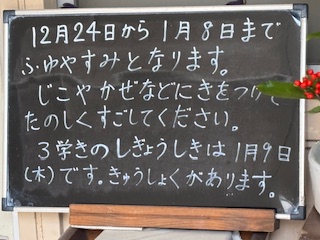 12月24日から1月8日まで
ふゆやすみとなります。
じこやかぜなどにきをつけて
たのしくすごしてください。
3学きのしぎょうしきは1月9日
(木)です。きゅうしょくがあります。